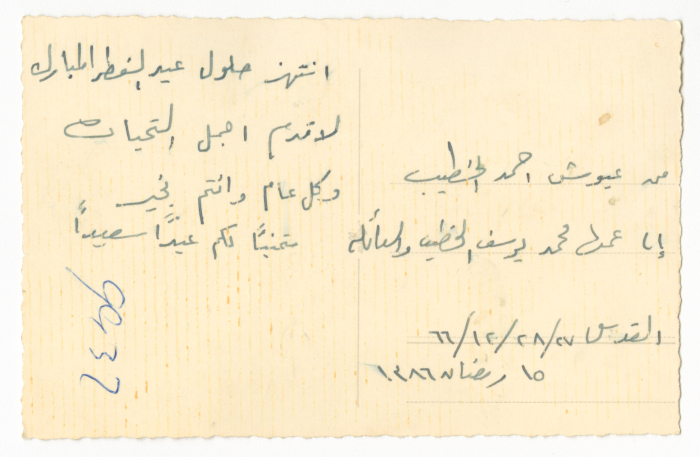 انتهز حلول عيد الفطر المبارك
لاقدم اجمل التحيات
وكل عام وانتم بخير
متمنيًا لكم عيدًا سعيدًا
من عيوش احمد الخطيب
إلى عمها محمد يوسف الخطيب والعائلة
القدس ٢٧/٢٨/١٢/٦٦
١٥ رمضان ١٣٨٦